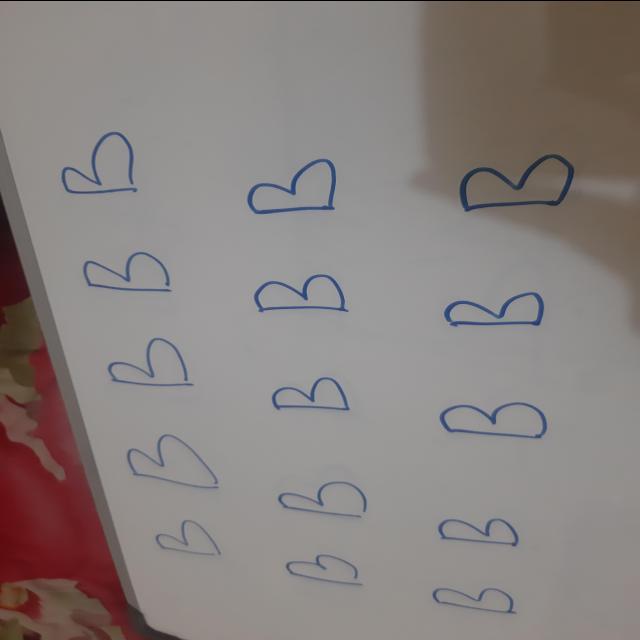 B B B B B
B B B B B
B B B B B